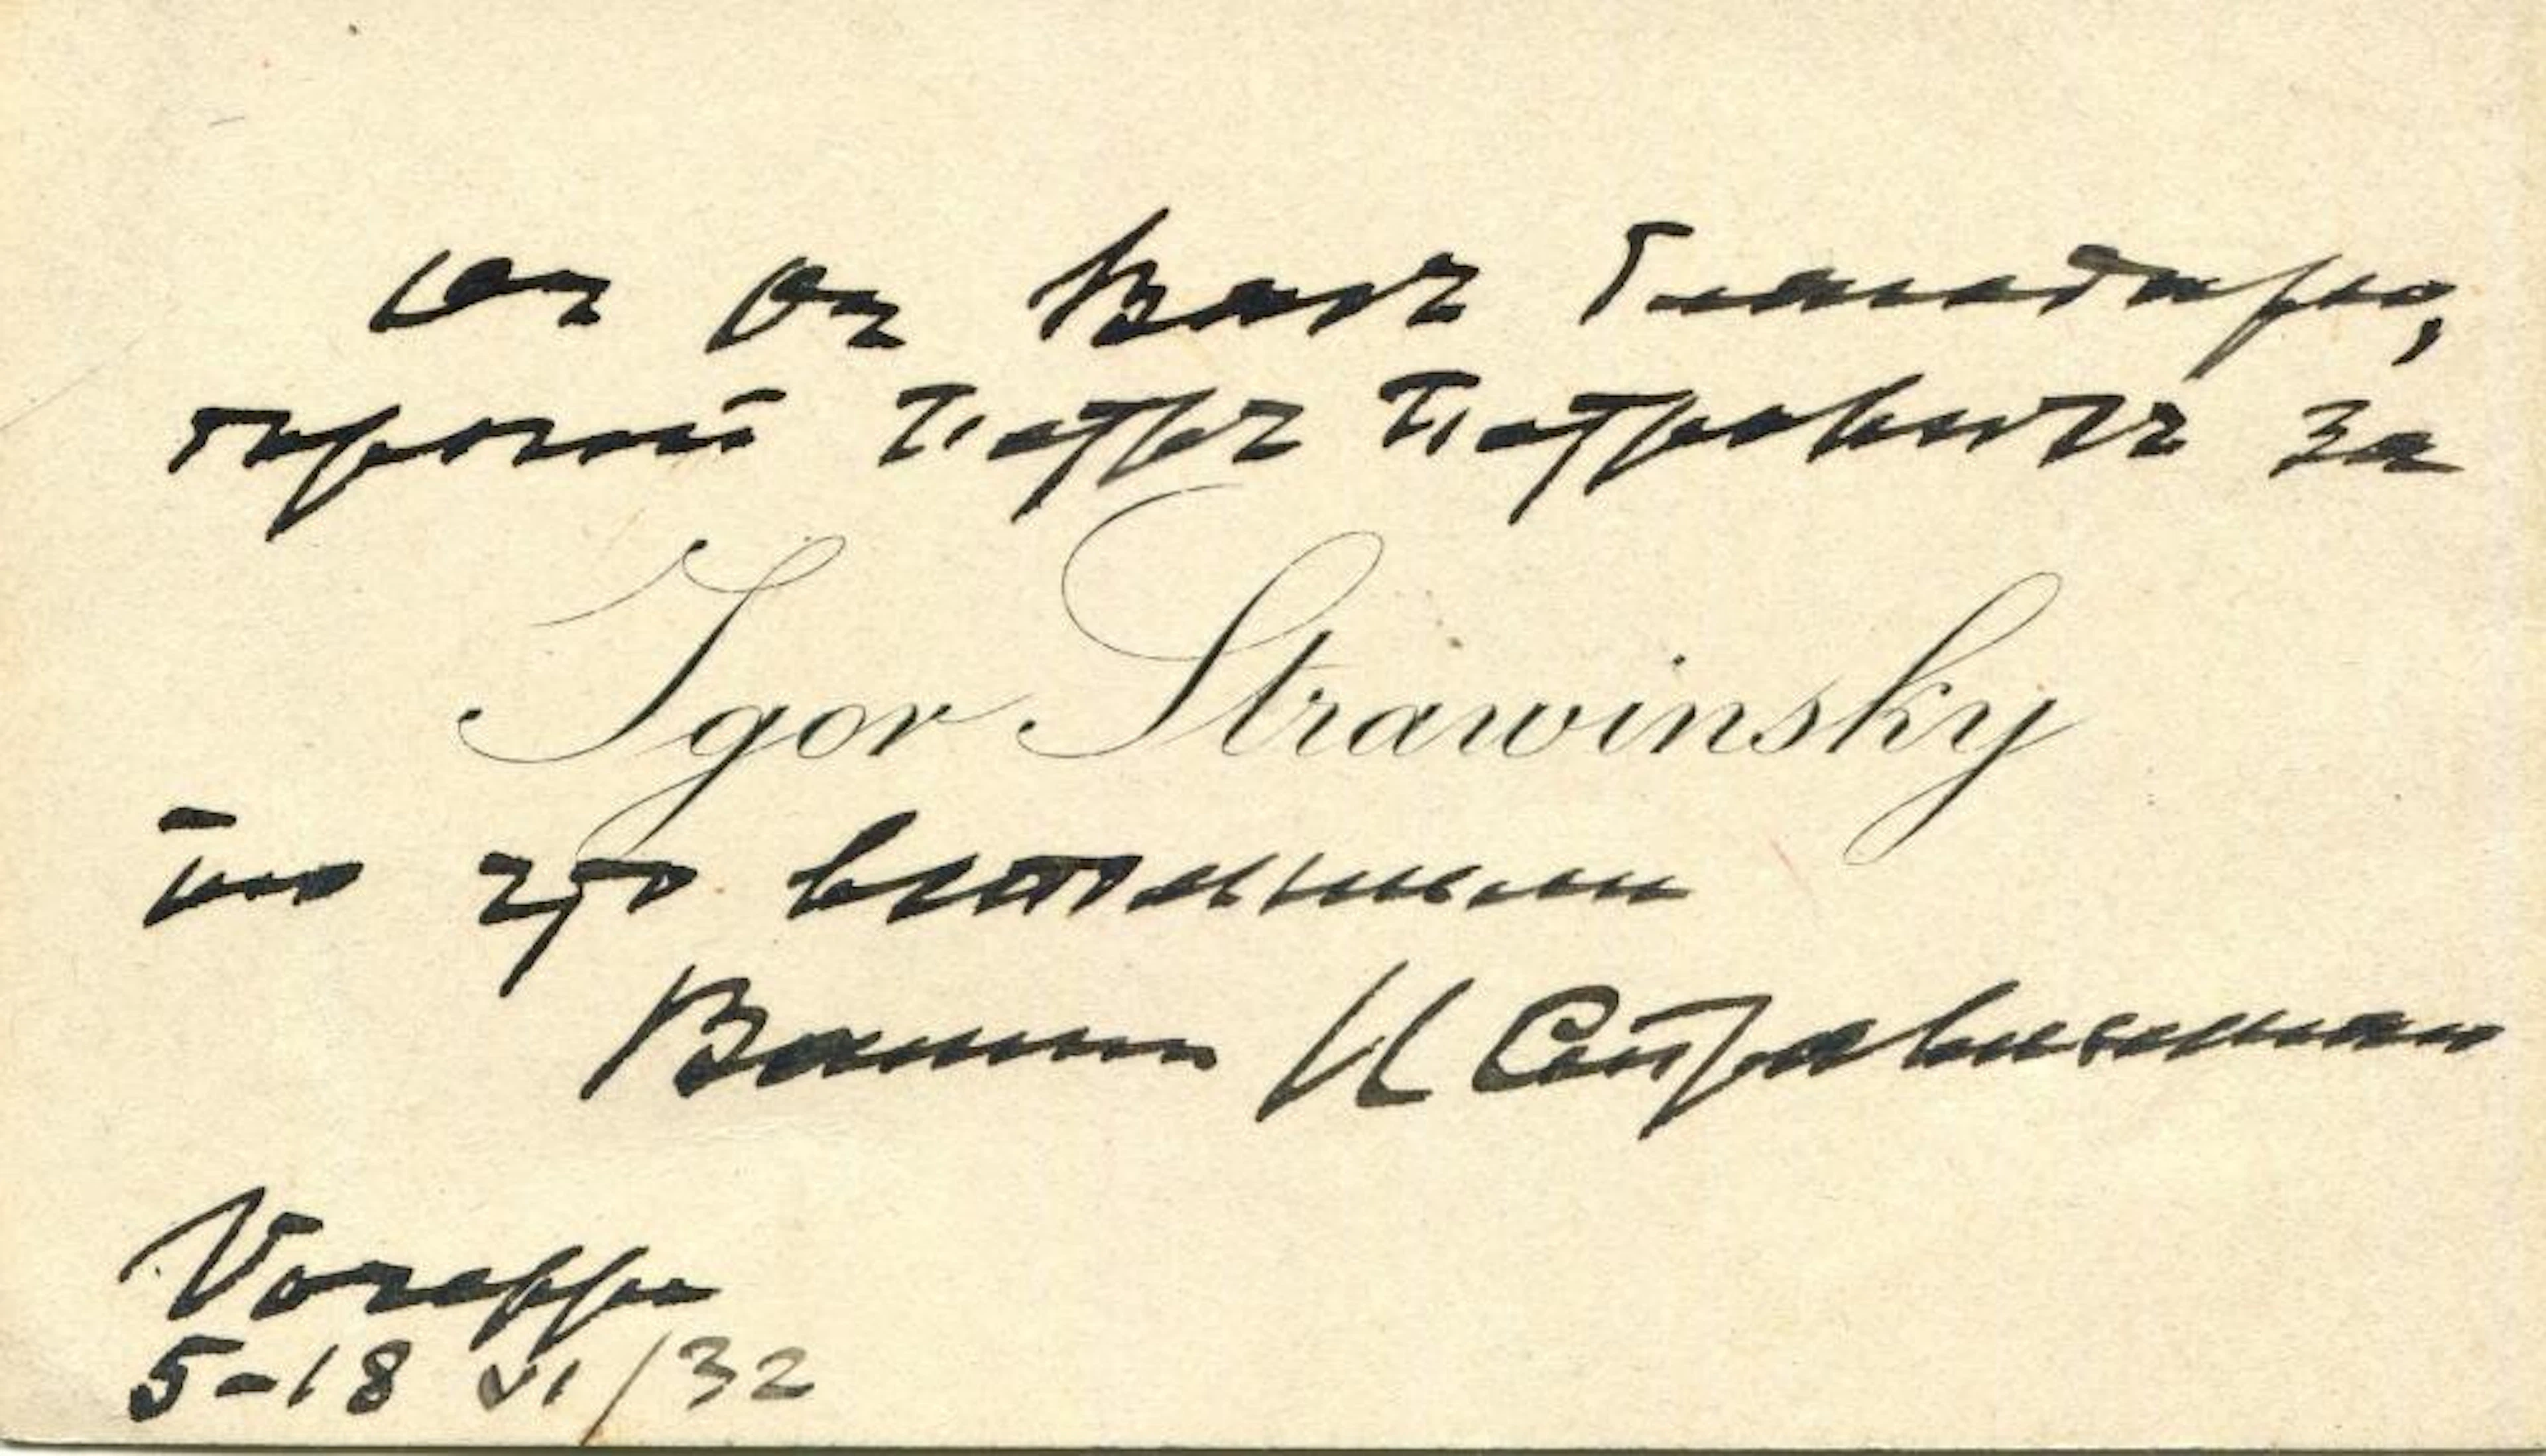 оч оч Васъ благодарю,
дорогой Петръ Петровичъ за
Igor Strawinsky
то что вспомнили
Вашъ И Стравинскій
Voreppe
5-18 VI/32